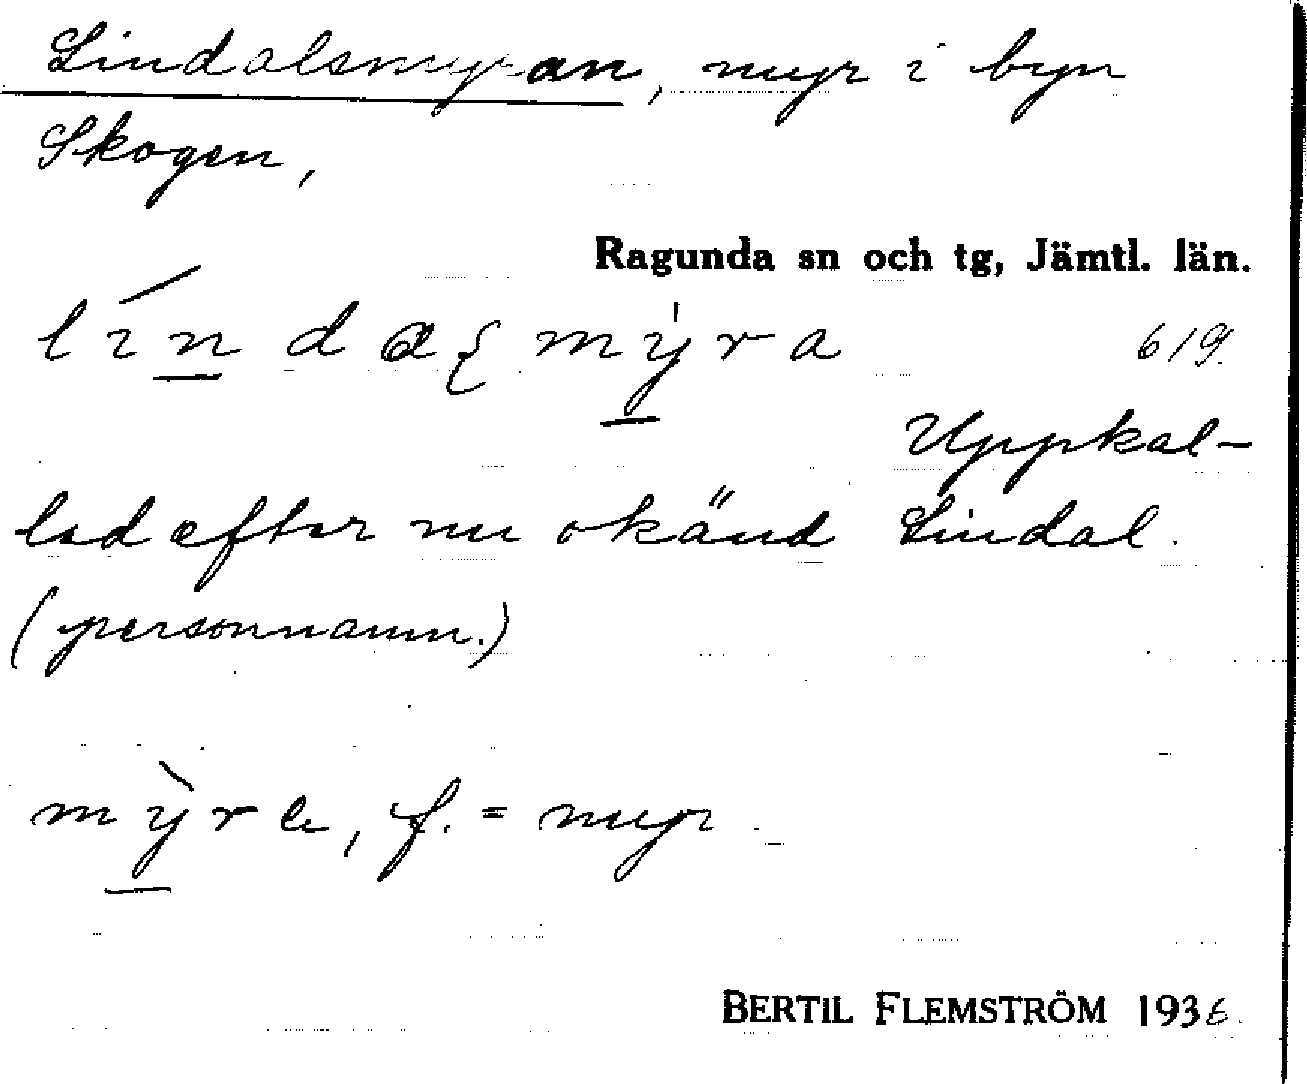 Lindalsmyran, myr i byn
Skogen,
Ragunda sn och tg, Jämtl. län.
líndaʃmýra 619
Uppkal-
lad efter nu okänd Lindal.
(personnamn.)
mỳra, f. = myr
BERTIL FLEMSTRÖM 1936.